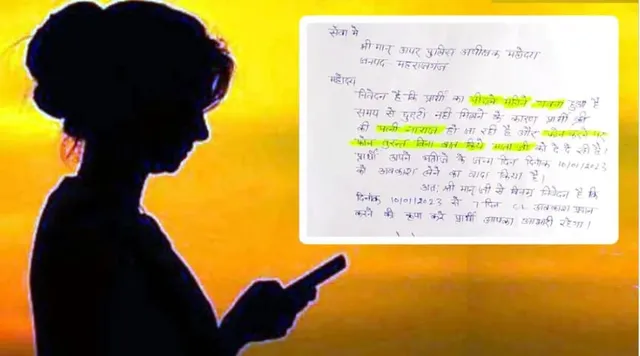 सेवा में
श्रीमान् अपर पुलिस अधीक्षक महोदय
जनपद महराजगंज
महोदय
निवेदन है कि प्रार्थी का पिछले महिने गवना हुआ है
समय से छुट्टी नहीं मिलने के कारण प्रार्थी की
की पत्नी नाराज हो जा रही है और फोन करने पर
फोन तुरन्त बिना बात किये माता जी को दे दे रही है।
प्रार्थी अपने भतीजे के जन्म दिन दिनांक 10/01/2023
को अवकाश लेने का वादा किया है।
अतः श्रीमान् जी से विनम्र निवेदन है कि
दिनांक 10/01/2023 से 7 दिन CL अवकाश प्रदान
करने की कृपा करें प्रार्थी आपका आभारी रहेगा।